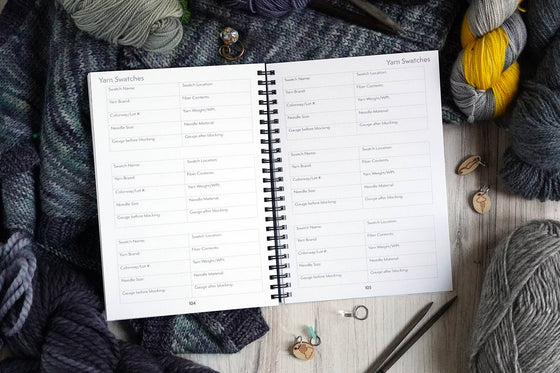 Yarn Swatches
Swatch Name: Swatch Location:
Yarn Brand: Fiber Contents:
Colorway/Lot #: Yarn Weight/WPI:
Needle Size: Needle Material:
Gauge before blocking: Gauge after blocking:
Swatch Name: Swatch Location:
Yarn Brand: Fiber Contents:
Colorway/Lot #: Yarn Weight/WPI:
Needle Size: Needle Material:
Gauge before blocking: Gauge after blocking:
Swatch Name: Swatch Location:
Yarn Brand: Fiber Contents:
Colorway/Lot #: Yarn Weight/WPI:
Needle Size: Needle Material:
Gauge before blocking: Gauge after blocking:
104
Yarn Swatches
Swatch Name: Swatch Location:
Yarn Brand: Fiber Contents:
Colorway/Lot #: Yarn Weight/WPI:
Needle Size: Needle Material:
Gauge before blocking: Gauge after blocking:
Swatch Name: Swatch Location:
Yarn Brand: Fiber Contents:
Colorway/Lot #: Yarn Weight/WPI:
Needle Size: Needle Material:
Gauge before blocking: Gauge after blocking:
Swatch Name: Swatch Location:
Yarn Brand: Fiber Contents:
Colorway/Lot #: Yarn Weight/WPI:
Needle Size: Needle Material:
Gauge before blocking: Gauge after blocking:
105